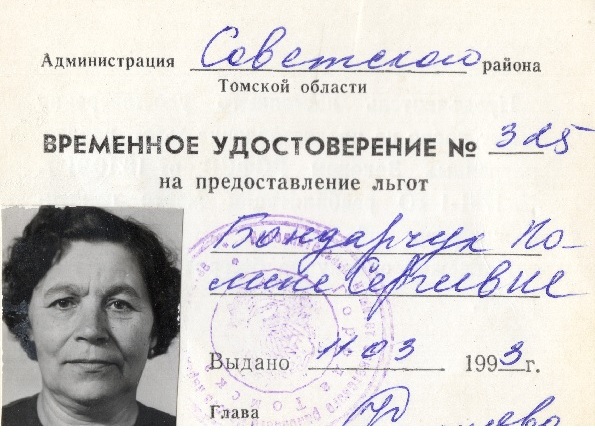 Администрация Советского района
Томской области
ВРЕМЕННОЕ УДОСТОВЕРЕНИЕ № 325
на предоставление льгот
Бондарчук По-
лине Сергеевне
Выдано 11.03 1993 г.
Глава